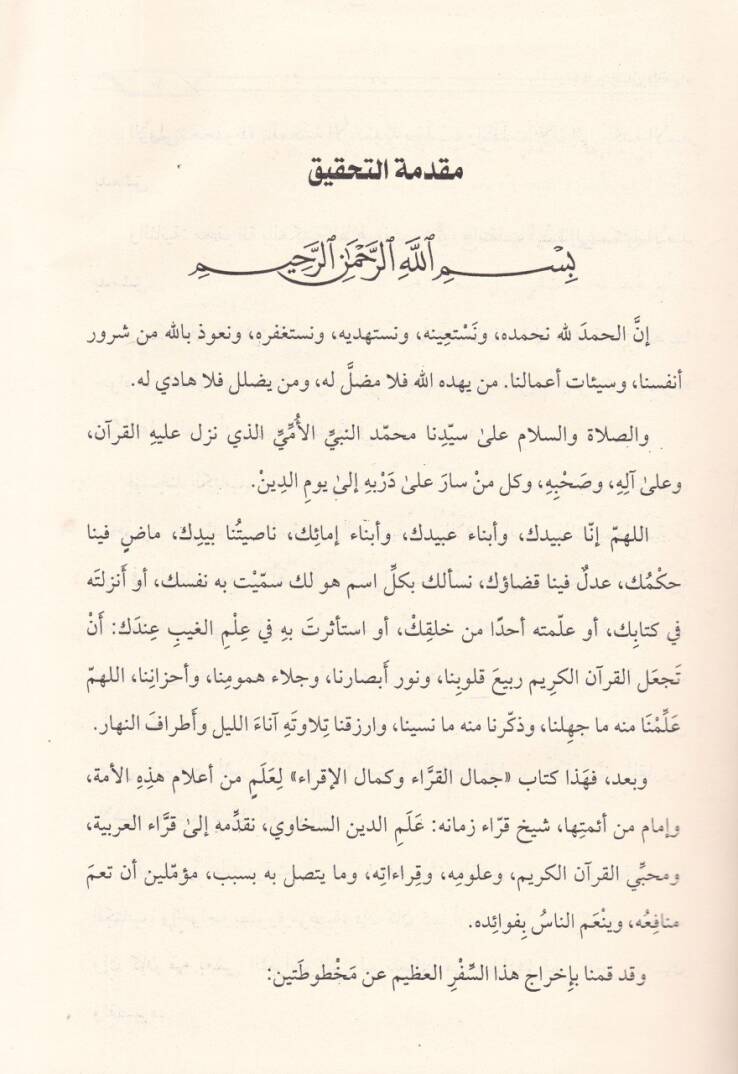 مقدمة التحقيق
بِسْمِ ٱللَّهِ ٱلرَّحْمَٰنِ ٱلرَّحِيمِ
إنَّ الحمدَ لله نحمده، ونَسْتعِينه، ونستهديه، ونستغفره، ونعوذ بالله من شرور
أنفسنا، وسيئات أعمالنا. من يهده الله فلا مضلَّ له، ومن يضلل فلا هادي له.
والصلاة والسلام علىٰ سيّدِنا محمّد النبيِّ الأُمِّيِّ الذي نزل عليهِ القرآن،
وعلىٰ آلِهِ، وصَحْبِهِ، وكل منْ سارَ علىٰ دَرْبهِ إلىٰ يومِ الدِينْ.
اللهمّ إنّا عبيدك، وأبناء عبيدك، وأبناء إمائِك، ناصيتُنا بيدِك، ماضٍ فينا
حكْمُك، عدلٌ فينا قضاؤك، نسألك بكلِّ اسم هو لك سمّيْت به نفسك، أو أَنزلتَه
في كتابِك، أو علّمته أحدًا من خلقِكْ، أو استأثرتَ بهِ في عِلْمِ الغيبِ عِندَك: أَنْ
تَجعَل القرآن الكرِيم ربيعَ قلوبِنا، ونور أَبصارنا، وجلاء همومِنا، وأحزانِنا، اللهمّ
عَلِّمْنَا منه ما جهِلنا، وذكّرنا منه ما نسينا، وارزقنا تِلاوتَهِ آناءَ الليل وأَطرافَ النهار.
وبعد، فهَذا كتاب «جمال القرَّاء وكمال الإقراء» لِعَلَمٍ من أعلام هذِهِ الأمة،
وإمام من أئمتِها، شيخ قرّاء زمانه: عَلَمِ الدين السخاوي، نقدِّمه إلىٰ قرَّاء العربية،
ومحبِّي القرآن الكريم، وعلومِه، وقِراءاتِه، وما يتصل به بسبب، مؤمّلين أن تعمَ
منافِعُه، وينْعَم الناسُ بِفوائِده.
وقد قمنا بإِخراج هذا السِّفْرِ العظيم عن مَخْطوطَتين: